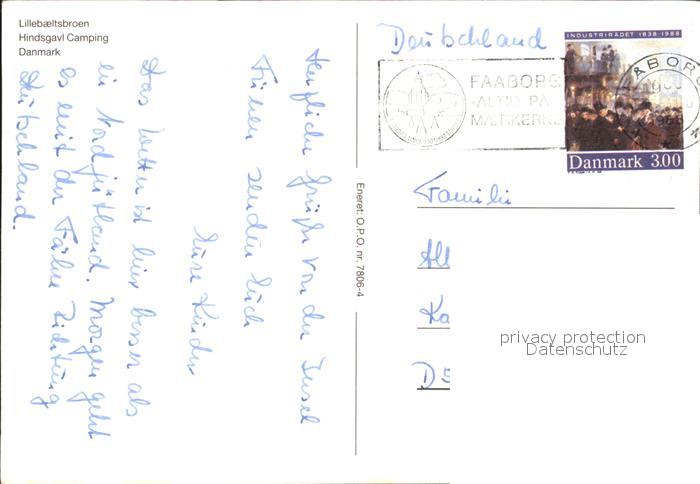 Lillebæltsbroen
Hindsgavl Camping
Danmark
Herzliche Grüße von der Insel
Fünen senden Euch
Eure Kinder
Das Wetter ist hier besser als
in Nordjütland. Morgen geht
es mit der Fähre Richtung
Deutschland.
Eneret: O.P.O. nr. 7806-4
Deutschland
FAABORG
-ALTID PÅ
MÆRKERNE
INDUSTRIRÅDET 1838-1988
Danmark 3.00
Familie
All
Ka
D5
privacy protection
Datenschutz